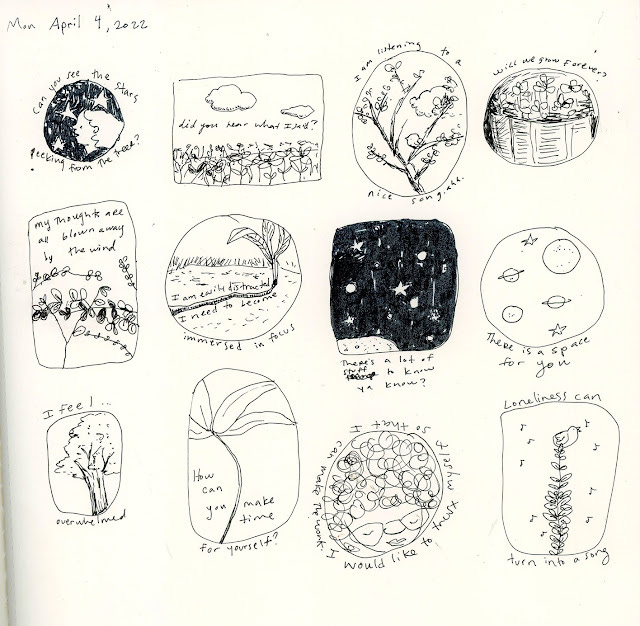 Mon April 4, 2022
Can you see the stars
peeking from the trees?
did you hear what I said?
I am listening to a
nice song, ahh.
Will we grow forever?
my thoughts are
all blown away
by the wind
I am distracted
I need to become
immersed in focus
There's a lot of
stuff
to know
ya know?
There is a space
for you
I feel...
overwhelmed
How
can
you make
time
for yourself?
I would like to trust
myself
so that I
can make the work
Loneliness can
turn into a song